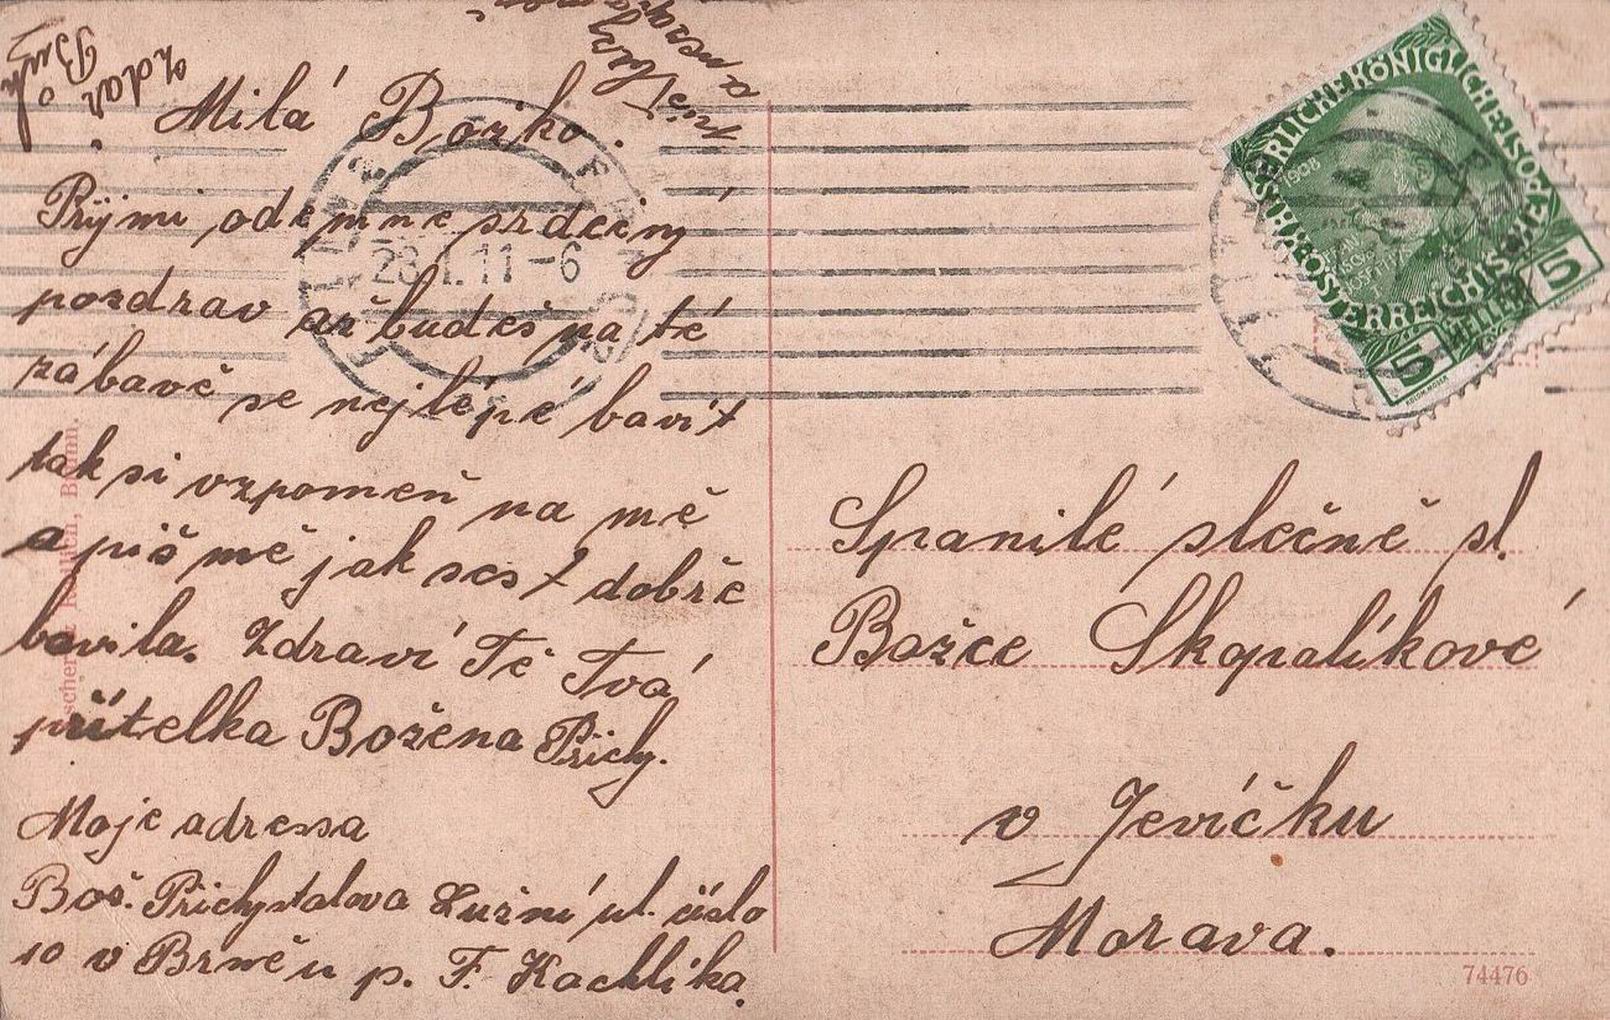 Bůh
zdar!
Milá Božko.
Přijmi odemne srdečný
pozdrav až budeš na té
zábavě se nejlépé bavit
tak si vzpomeň na mě
a piš mě jak ses t dobře
bavila. Zdraví Tě Tvá
přítelka Božena Přichy.
Moje adressa
Bož. Přichystalova Lužní ul. číslo
10 v Brně u p. F. Kachlika.
28.I.11-6
KAISERLICHE KÖNIGLICHE ÖSTERREICHISCHE POST
1908
5 HELLER 5
Spanilé slečně sl.
Božce Skopalíkové
v Jevíčku
Morava.
74476